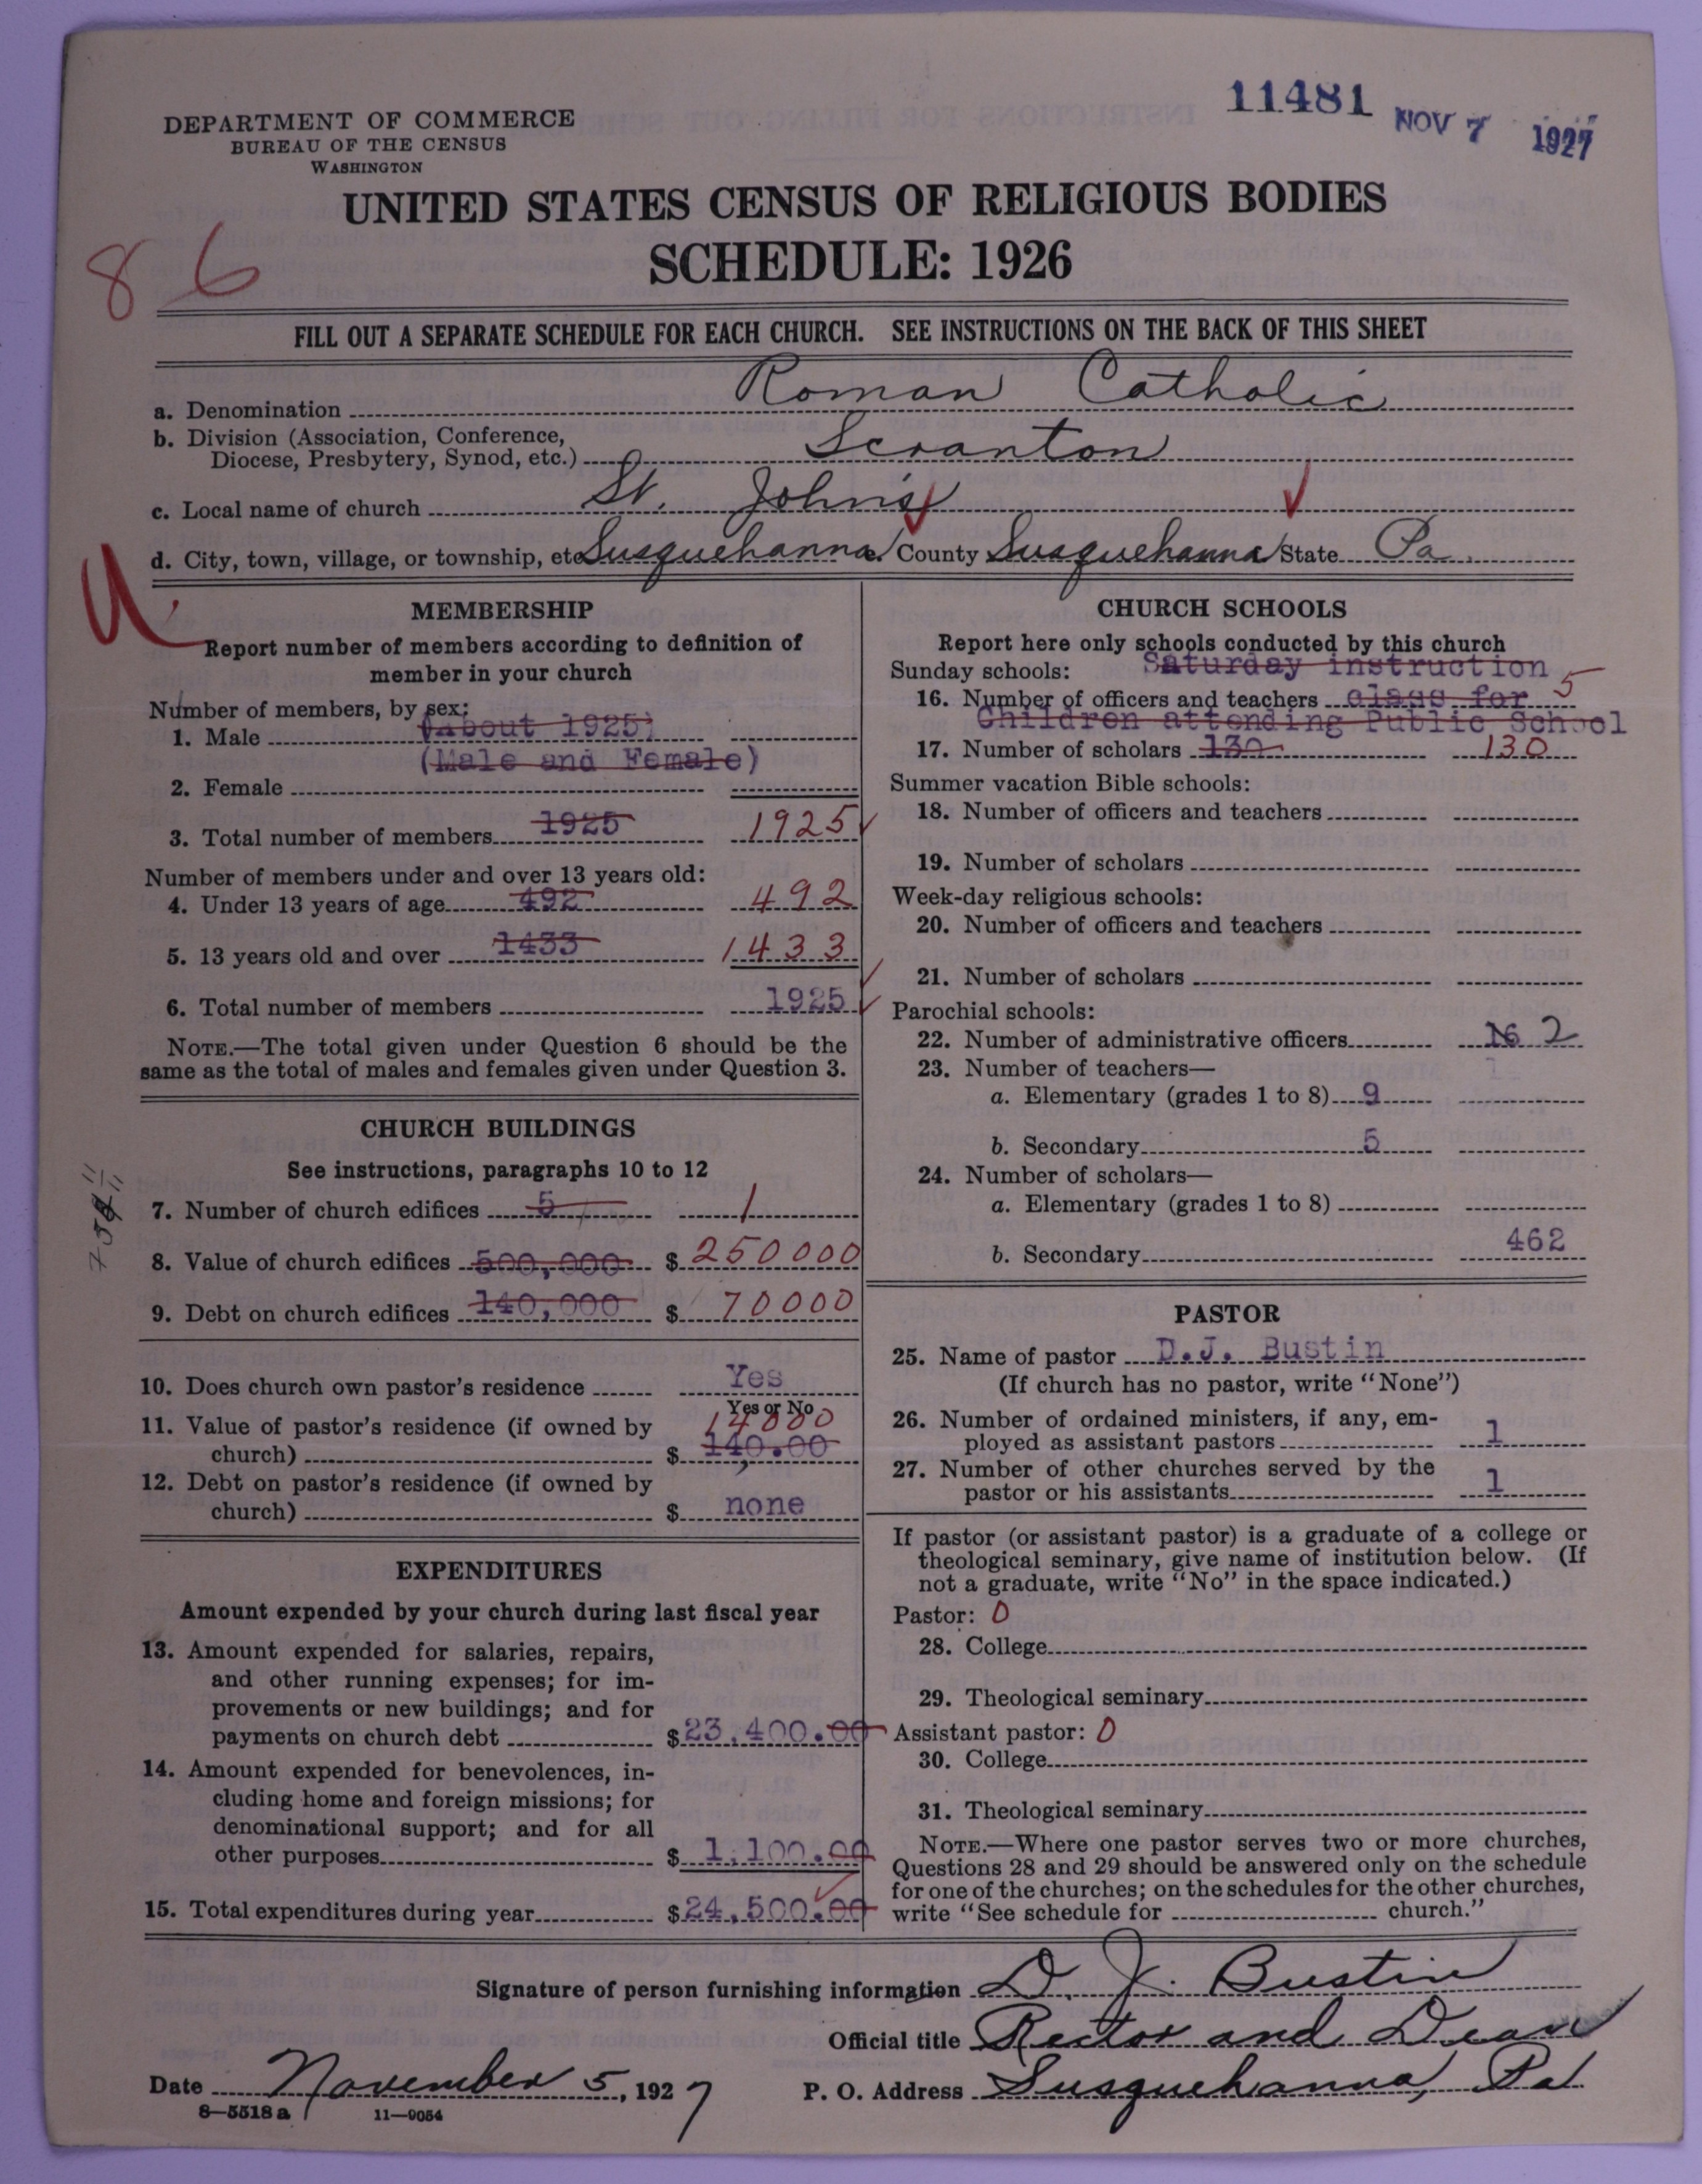 11481 NOV 7 1927
DEPARTMENT OF COMMERCE
BUREAU OF THE CENSUS
WASHINGTON
UNITED STATES CENSUS OF RELIGIOUS BODIES
SCHEDULE: 1926
86
FILL OUT A SEPARATE SCHEDULE FOR EACH CHURCH. SEE INSTRUCTIONS ON THE BACK OF THIS SHEET
a. Denomination Roman Catholic
b. Division (Association, Conference,
Diocese, Presbytery, Synod, etc.) Scranton
c. Local name of church St. John's
d. City, town, village, or township, etc. Susquehanna County Susquehanna State Pa.
MEMBERSHIP
Report number of members according to definition of
member in your church
Number of members, by sex:
(About 1925)
1. Male
(Male and Female)
2. Female
3. Total number of members 1925 1925
Number of members under and over 13 years old:
4. Under 13 years of age 492 492
5. 13 years old and over 1433 1433
6. Total number of members 1925
NOTE.—The total given under Question 6 should be the
same as the total of males and females given under Question 3.
CHURCH BUILDINGS
See instructions, paragraphs 10 to 12
7. Number of church edifices 5 1
8. Value of church edifices 500,000 $ 250000
9. Debt on church edifices 140,000 $ 70000
10. Does church own pastor's residence Yes
Yes or No
11. Value of pastor's residence (if owned by 14000
church) $ 140.00
12. Debt on pastor's residence (if owned by
church) $ none
EXPENDITURES
Amount expended by your church during last fiscal year
13. Amount expended for salaries, repairs,
and other running expenses; for im-
provements or new buildings; and for
payments on church debt $ 23,400.00
14. Amount expended for benevolences, in-
cluding home and foreign missions; for
denominational support; and for all
other purposes $ 1,100.00
15. Total expenditures during year $ 24,500.00
CHURCH SCHOOLS
Report here only schools conducted by this church
Sunday schools: Saturday instruction
16. Number of officers and teachers class for 5
Children attending Public School
17. Number of scholars 130 130
Summer vacation Bible schools:
18. Number of officers and teachers
19. Number of scholars
Week-day religious schools:
20. Number of officers and teachers
21. Number of scholars
Parochial schools:
22. Number of administrative officers 16 2
23. Number of teachers—
a. Elementary (grades 1 to 8) 9
b. Secondary 5
24. Number of scholars—
a. Elementary (grades 1 to 8)
b. Secondary 462
PASTOR
25. Name of pastor D.J. Bustin
(If church has no pastor, write "None")
26. Number of ordained ministers, if any, em-
ployed as assistant pastors 1
27. Number of other churches served by the
pastor or his assistants 1
If pastor (or assistant pastor) is a graduate of a college or
theological seminary, give name of institution below. (If
not a graduate, write "No" in the space indicated.)
Pastor: 0
28. College
29. Theological seminary
Assistant pastor: 0
30. College
31. Theological seminary
NOTE.—Where one pastor serves two or more churches,
Questions 28 and 29 should be answered only on the schedule
for one of the churches; on the schedules for the other churches,
write "See schedule for church."
Signature of person furnishing information D. J. Bustin
Official title Rector and Dean
Date November 5, 1927 P. O. Address Susquehanna, Pa
8—5518a 11—9054